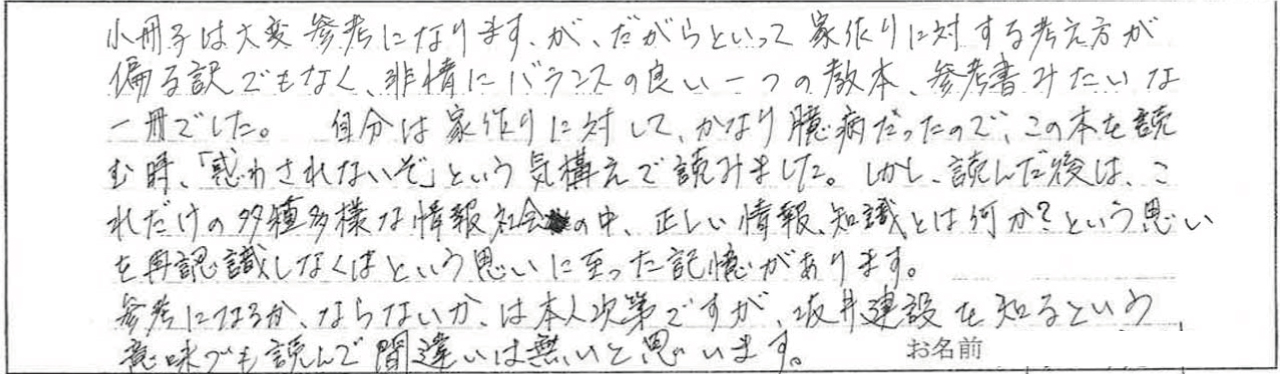 小冊子は大変参考になりますが、だからといって家作りに対する考え方が
偏る訳でもなく、非情にバランスの良い一つの教本、参考書みたいな
一冊でした。 自分は家作りに対して、かなり臆病だったので、この本を読
む時、「惑わされないぞ」という気構えで読みました。しかし、読んだ後は、こ
れだけの多種多様な情報社会の中、正しい情報、知識とは何か？という思い
を再認識しなくはという思いに至った記憶があります。
参考になるか、ならないか、は本人次第ですが、坂井建設を知るという
意味でも読んで間違いは無いと思います。
お名前